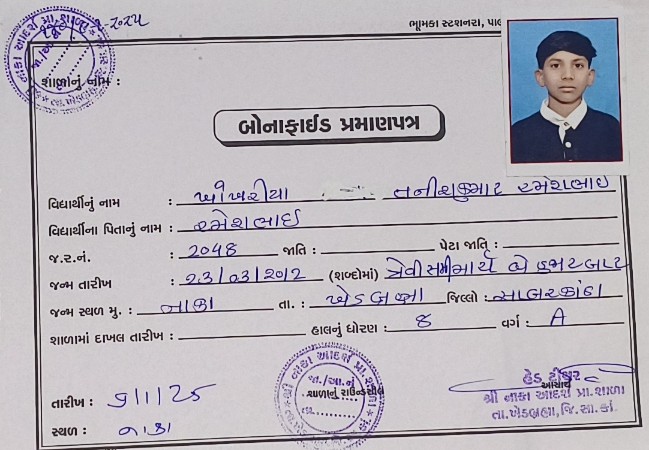 ભૂમકા સ્ટેશનરી, પાલ
શાળાનું નામ :
બોનાફાઈડ પ્રમાણપત્ર
વિદ્યાર્થીનું નામ : ખોખરીયા તનીશકુમાર રમેશભાઈ
વિદ્યાર્થીના પિતાનું નામ : રમેશભાઈ
જ.ર.નં. : 2048 જાતિ : પેટા જાતિ :
જન્મ તારીખ : 23/03/2012 (શબ્દોમાં) ત્રેવીસમી માર્ચ બે હજાર બાર
જન્મ સ્થળ મુ. : નાકા તા. : ખેડબ્રહ્મા જિલ્લો : સાબરકાંઠા
શાળામાં દાખલ તારીખ : હાલનું ધોરણ : 8 વર્ગ : A
તારીખ : 9/1/25
સ્થળ : નાકા
શાળાનું રાઉન્ડ સીલ
હેડ ટીચર
આચાર્ય
શ્રી નાકા આદર્શ પ્રા.શાળા
તા.ખેડબ્રહ્મા, જિ.સા.કાં.